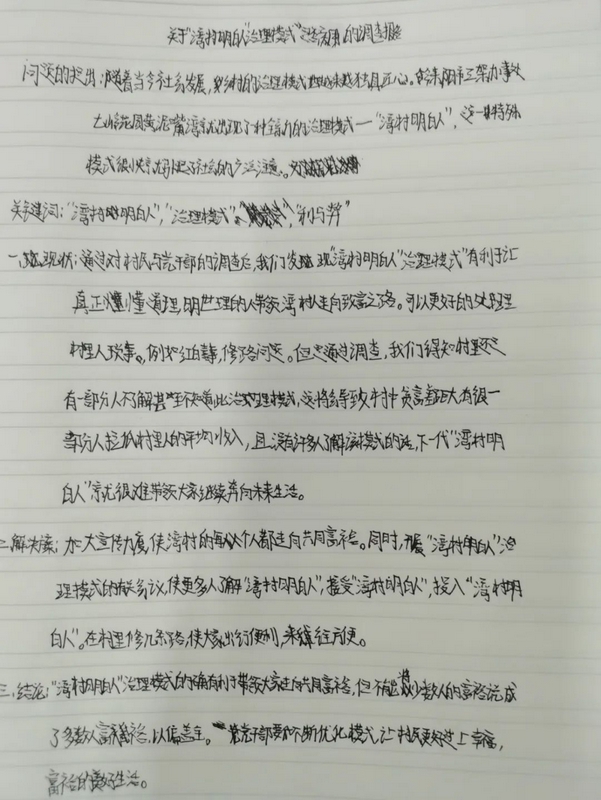 关于"湾村明白人"治理模式的调查报告
问题的提出:随着当今社会发展,乡村的治理模式越来越有匠心。耒阳市三架办事处
七岭花园黄泥嘴湾就出现了一种全新的治理模式——"湾村明白人",这一特殊
模式很快引起了社会的广泛注意。
关键词:"湾村明白人","治理模式","利与弊"
一、现状:通过对村民与党干部的调查后,我们发现"湾村明白人"治理模式"有利于让
真正懂道理,明世理的人带领湾村走向致富之路。可以更好的处理
村里人琐事。例如红白喜事,修路问题。但也通过调查,我们得知村里还
有一部分人不了解甚至不知道此治理模式,这将会导致村中贫富差距大有很一
部分人拉低村里人的平均收入,且没有许多人了解该模式的话,下一代"湾村明
白人"就很难带领大家继续奔向未来生活。
二、解决方案:加大宣传力度,使湾村的每个人都走向共同富裕。同时,开展"湾村明白人"治
理模式的有关会议,使更多人了解"湾村明白人",接受"湾村明白人",投入"湾村明
白人"。在村里修几条路,使大家出行便利,来往方便。
三、结论:"湾村明白人"治理模式的确有利于带领大家走向共同富裕,但不能将少数人的富裕说成
了多数人富裕,以偏盖全。党干部要不断优化模式,让村民更好过上幸福,
富裕的美好生活。